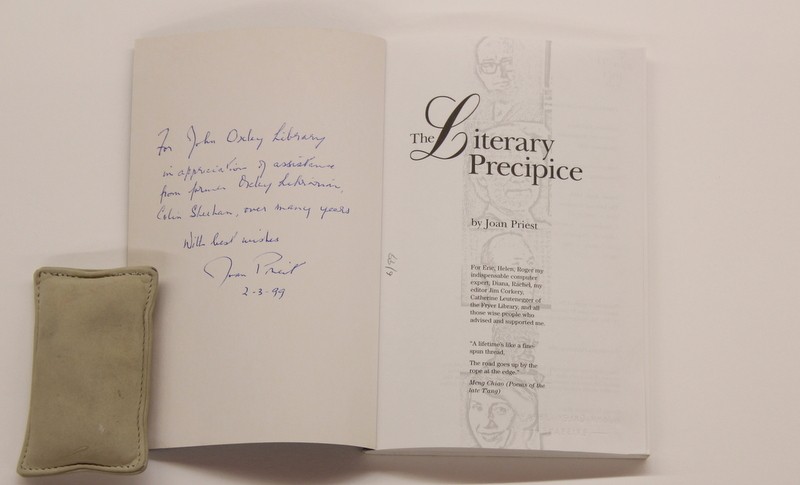 For John Oxley Library
in appreciation of assistance
from former Oxley Librarian,
Colin Sheehan, over many years
With best wishes
Joan Priest
2-3-99
6/99
The Literary
Precipice
by Joan Priest
For Eric, Helen, Roger my
indispensable computer
expert, Diana, Rachel, my
editor Jim Corkery,
Catherine Leutenegger of
the Fryer Library, and all
those wise people who
advised and supported me.
"A lifetime's like a fine-
spun thread,
The road goes up by the
rope at the edge."
Meng Chiao (Poems of the
late T'ang)